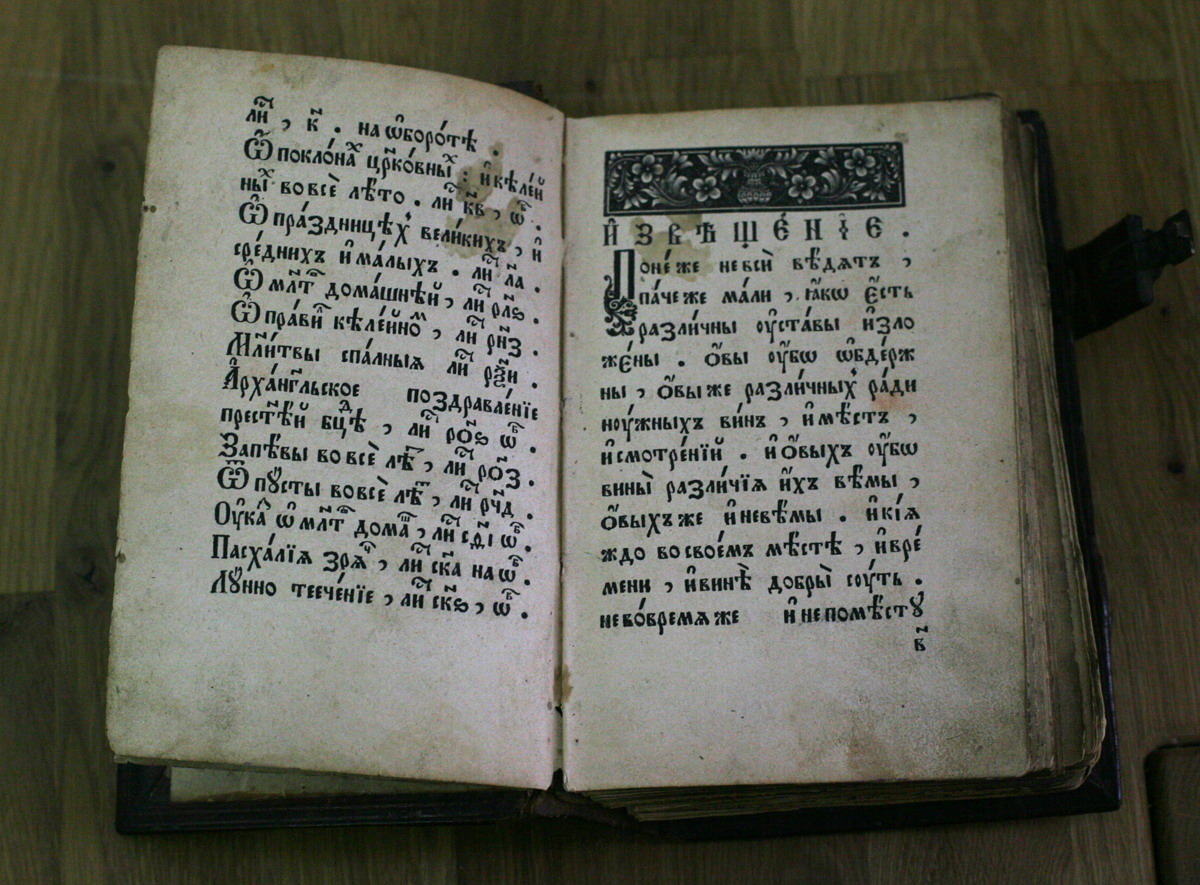 лиⷭ҇ , к҃ . на ѡ҆боро́тѣ .
Ѡ҆ покло́наⷯ цр҃ко́вныⷯ : и҆ кѣле́й
ныⷯ во всѐ лѣ́то . лиⷭ҇ к҃в , ѡ҆ⷠ .
Ѡ҆ пра́здницѣⷯ вели́кихъ , и҆
сре́днихъ и҆ ма́лыхъ . лиⷭ҇ л҃а .
Ѡ҆ мл҃тⷡ дома́шней , лиⷭ҇
Ѡ҆ прави́ⷧ кѣле́йноⷨ , лиⷭ҇ рн҃з .
Мл҃и́твы спа́лныѧ лиⷭ҇
А҆рха́нг҃льское поздравле́нїе
прест҃ѣ́й бцⷣѣ , лиⷭ҇ ро҃ѕ ѡ҆ⷠ .
Запѣ́вы во всѐ лѣⷮ , лиⷭ҇ ро҃з .
Ѿпꙋ́сты во всѐ лѣⷮ , лиⷭ҇ рч҃д .
Оу҆каⷥ ѡ҆ мл҃тⷡ дома , лиⷭ҇ ѡ҆ⷠ .
Пасха́лїѧ зрѧ , лиⷭ҇ ск҃а на ѡ҆ⷠ .
Лꙋ́нно теече́нїе , лиⷭ҇ ск҃ѕ , ѡ҆ⷠ .
И҆ЗВѢЩЕ́НІЕ .
Поне́же не всѝ вѣ́дѧтъ ,
па́че же ма́ли , ꙗ҆́кѡ є҆́сть
разли́чны оу҆ста́вы и҆зло
же́ны . ѻ҆́вы оу҆́бѡ ѡ҆бде́рж
ны , ѻ҆́вы же разли́чныⷯ ра́ди
ноу́жныхъ ви́нъ , и҆ мѣ́стъ ,
и҆ смотре́нїй . и҆ ѻ҆́выхъ оу҆́бѡ
вины̀ разли́чїѧ и҆́хъ вѣ́мы ,
ѻ҆́выхъ же и҆ не вѣ́мы . и҆ кі́ѧ
ждо во свое́мъ мѣ́стѣ , и҆ вре́
мени , и҆ винѣ̀ добры̀ соу́ть .
не во́времѧ же и҆ не помѣ́стꙋ
в҃